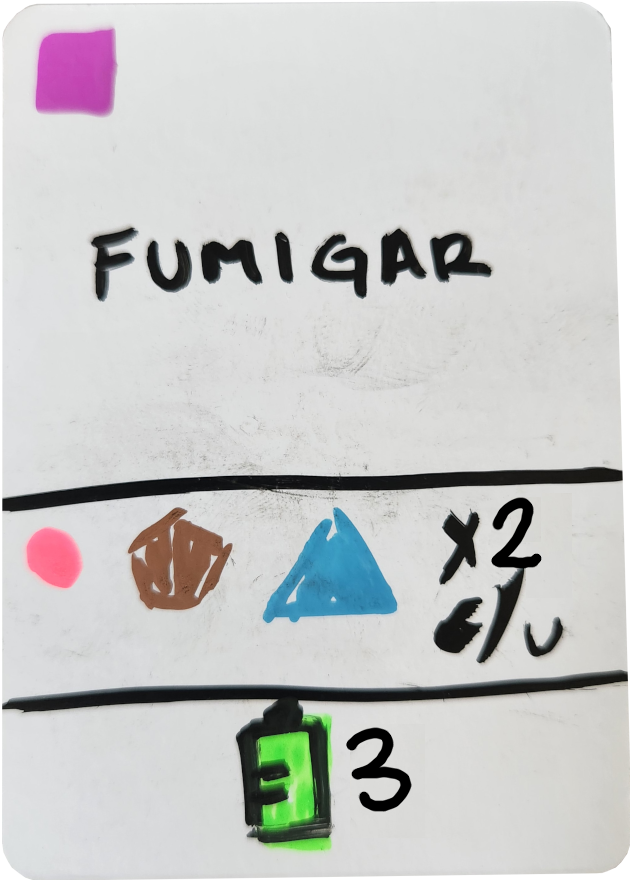 FUMIGAR
x2
c/u
E 3